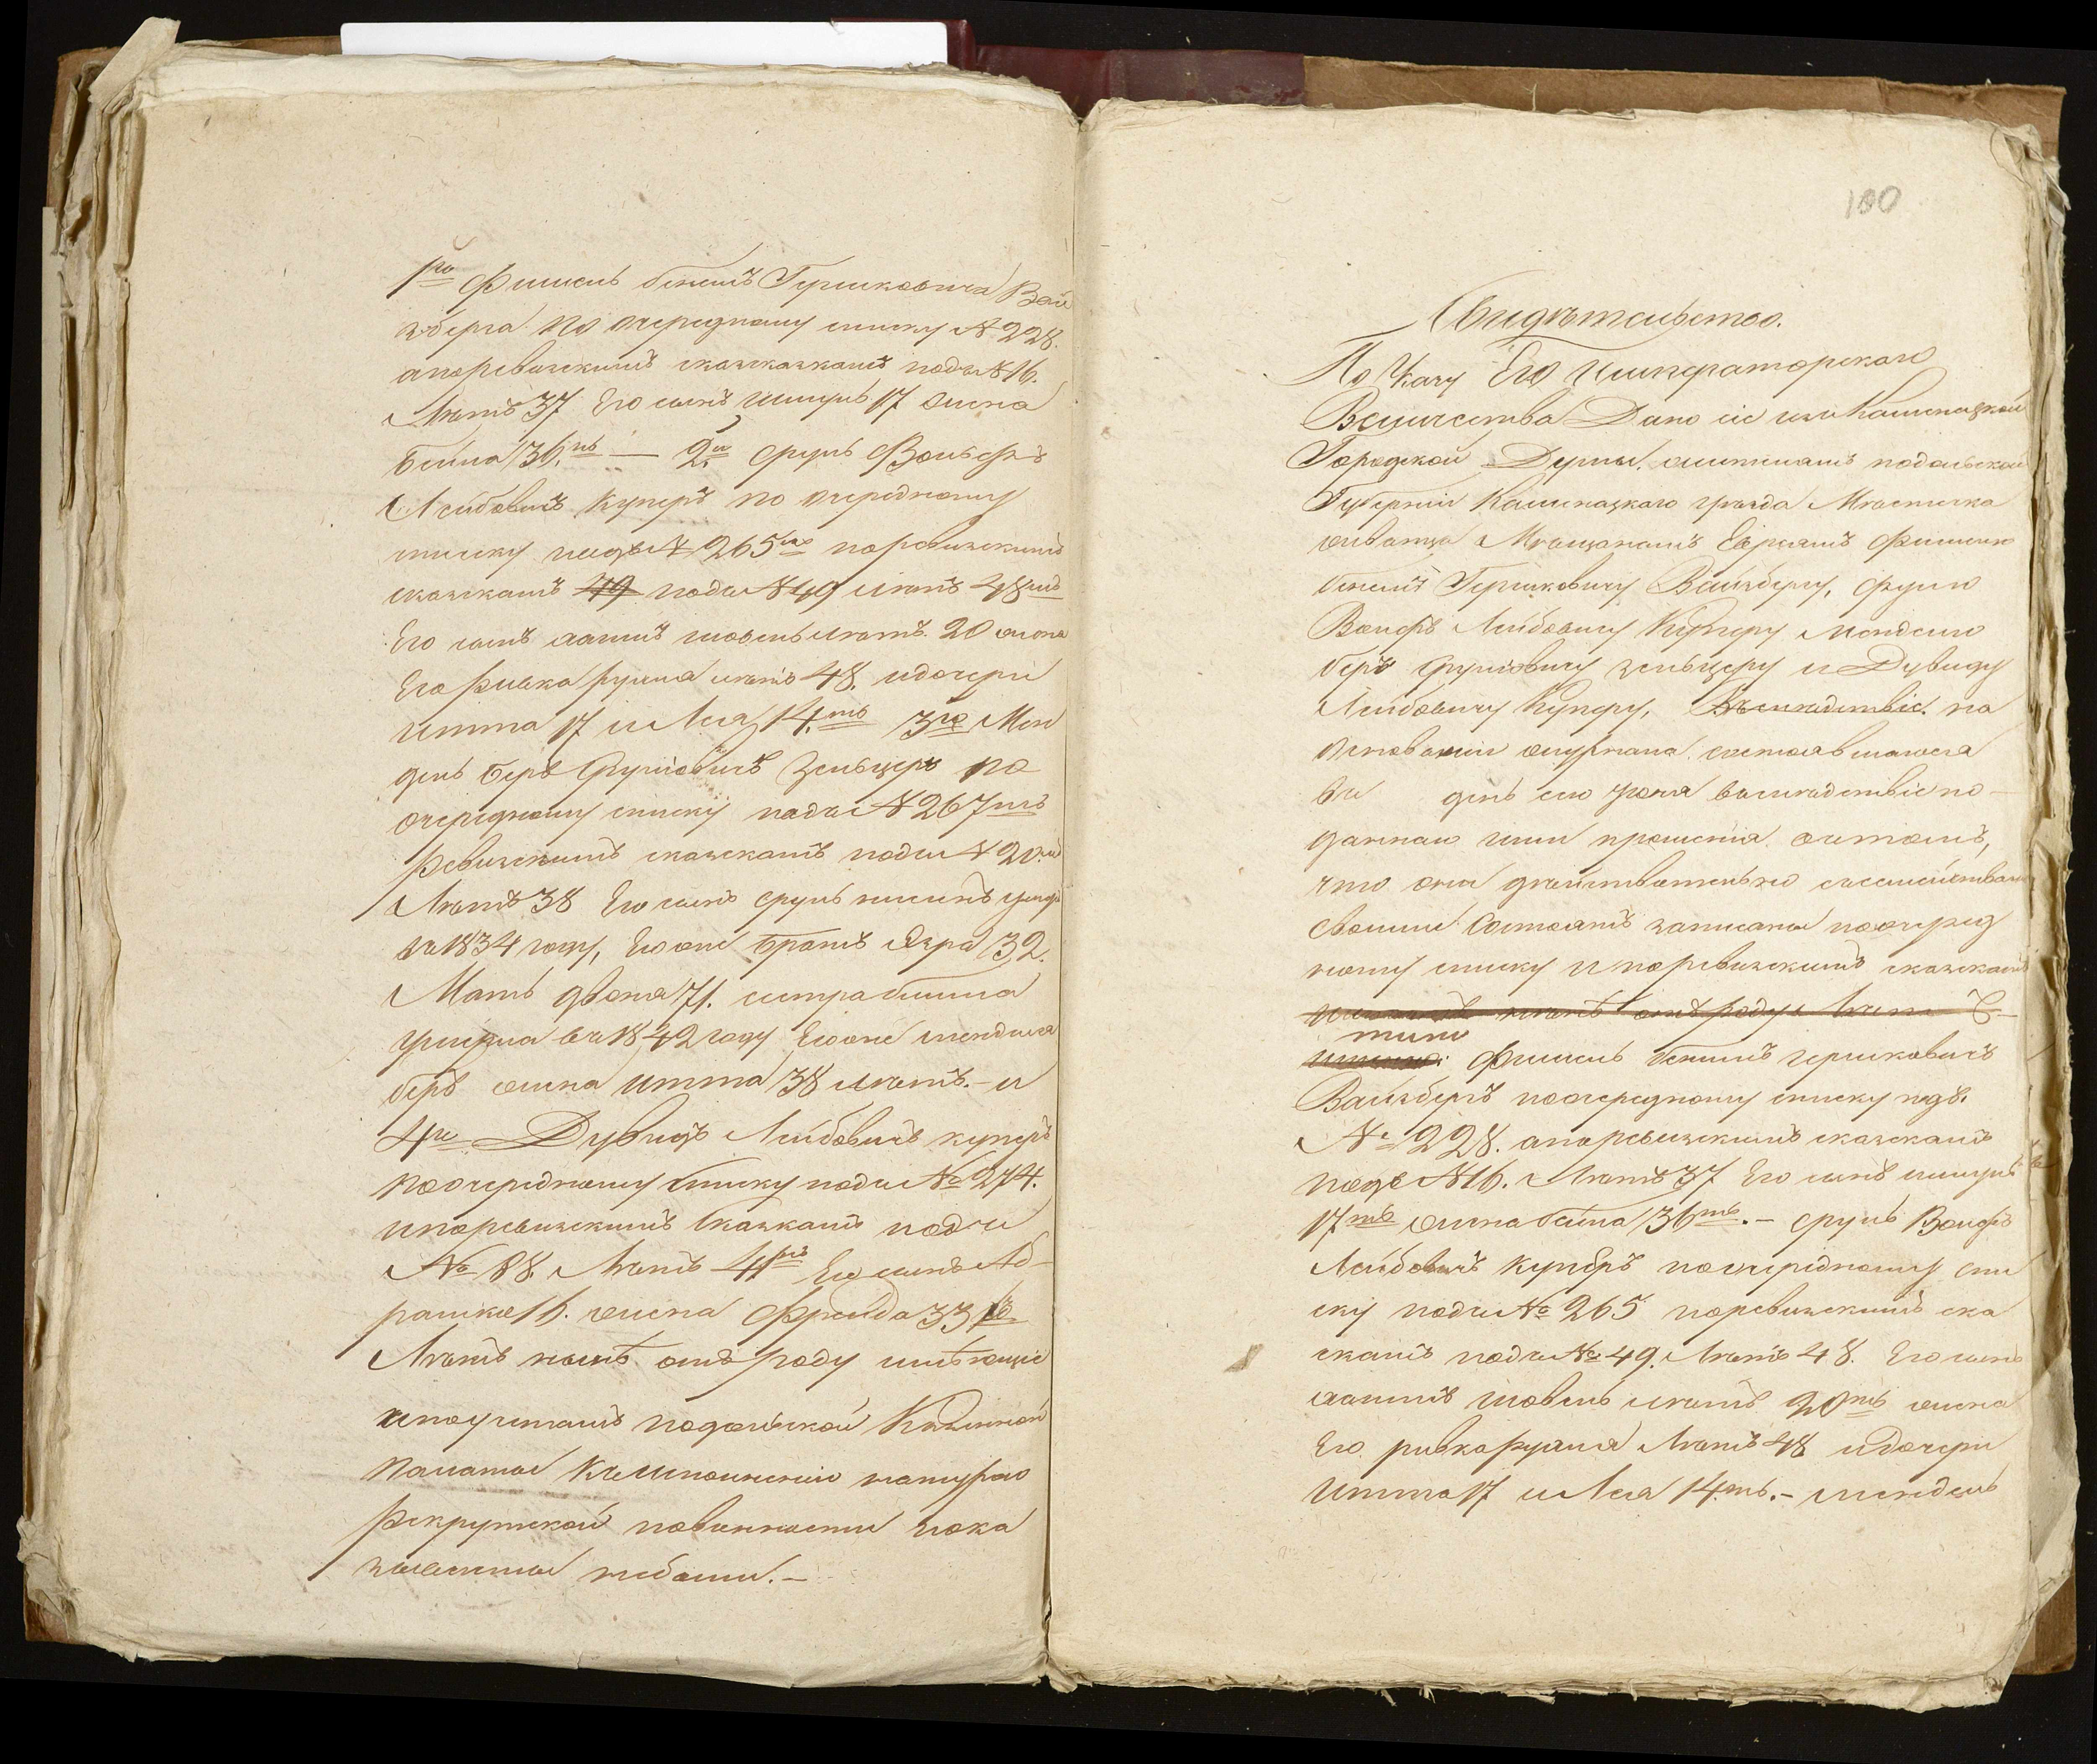 1го Фишель бениъ Гершковича Вай
зберга по очередному списку № 228.
апоревизскимъ сказсказкамъ подъ № 16.
Лѣтъ 37 Его сынъ 17 жена
Бейла 36.ть — 2й Сруль Вольфъ
Лейбовичъ Куперъ по очередному
списку подъ № 265 поревизскимъ
сказкамъ 49 подъ № 49 лѣтъ 48
Его сынъ шовель лѣтъ 20 жена
Его ривка рухля лѣтъ 48. идочери
итта 17 и Лея 14.ть 3го Мен
дель беръ Сруловичъ Зельцеръ по
очередному списку подъ № 267
ревизскимъ сказкамъ подъ № 20
Лѣтъ 38 Его сынъ сруль
въ 1834 году, Егоже братъ 32.
Мать двойра 71. сестра
умерла въ 1842 году Егоже менделя
беръ жена итта 38 лѣтъ. – и
4й Дувидъ Лейбовичъ куперъ
поочередному списку подъ № 274.
ипоревизскимъ сказкамъ подъ
№ 88. Лѣтъ 41 Его сынъ Аб-
рамко 16. жена Фрейда 33
Лѣтъ отъ роду имѣющіе
ипоучетамъ подольской Казенной
Палаты къ исполненію натурою
рекрутской повинности пока
зываемы небыли. –
100
Свидѣтельство.
По Указу Его Императорскаго
Величества Дано сіе изъ Каменецкой
Городской Думы, жителямъ подольской
Губерніи Каменецкаго уѣзда Мѣстечка
жванца Мѣщанамъ Евреямъ Фишелю
бениъ Гершковичу Вайзбергу, срулю
Вольфъ Лейбовичу Куперу Менделю
беръ Сруловичу зельцеру и Дувиду
Лейбовичу Куперу, Въслѣдствіе. на
основаніи журнала состоявшагося
въ день сего года въслѣдствіе по-
даннаго ими прошенія о томъ,
что они дѣйствительно съсемействами
своими Состоятъ записаны поочеред
ному списку и поревизскимъ сказкамъ
Фишель бениъ гершковичъ
Вайзбергъ поочередному списку подъ
№ 228. апоревизскимъ сказкамъ
подъ № 16. Лѣтъ 37 Его сынъ
17ть жена бейла 36ть. – сруль Вольфъ
Лейбовичъ Куперъ поочередному спи
ску подъ № 265 поревизскимъ ска
зкамъ подъ № 49. Лѣтъ 48. Его сынъ
шовель лѣтъ 20ть жена
Его ривка рухля Лѣтъ 48 идочери
Итта 17 и Лея 14.ть. – мендель